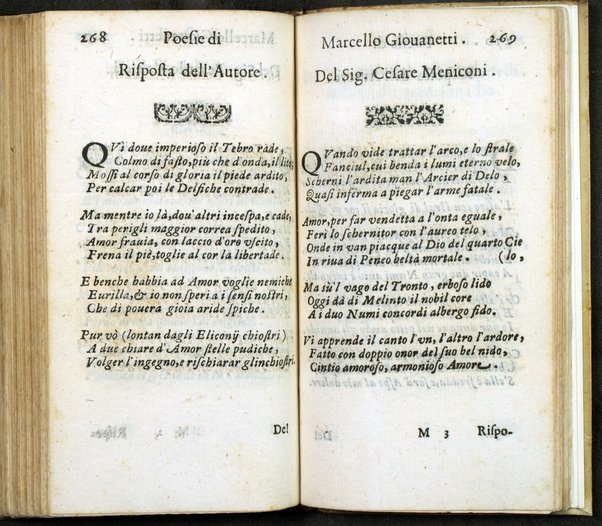 268 Poesie di
Risposta dell'Autore.
QVì doue imperioso il Tebro rade,
Colmo di fasto, più che d'onda, il lito,
Mossi al corso di gloria il piede ardito,
Per calcar poi le Delfiche contrade.
Ma mentre io là, dou'altri incespa, e cade,
Tra perigli maggior correa spedito,
Amor frauia, con laccio d'oro vscito,
Frena il piè, toglie al cor la libertade.
E benche habbia ad Amor voglie nemiche
Eurilla, & io non speri a i sensi nostri,
Che di pouera gioia aride spiche.
Pur vò (lontan dagli Eliconij chiostri)
A due chiare d'Amor stelle pudiche,
Volger l'ingegno, e rischiarar gl'inchiostri.
Del
Marcello Giouanetti. 269
Del Sig. Cesare Meniconi.
QVando vide trattar l'arco, e lo strale
Fanciul, cui benda i lumi eterno velo,
Scherni l'ardita man l'Arcier di Delo,
Quasi inferma a piegar l'arme fatale.
Amor, per far vendetta a l'onta eguale,
Ferì lo schernitor con l'aureo telo,
Onde in van piacque al Dio del quarto Cie
In riua di Peneo beltà mortale. (lo,
Ma sù'l vago del Tronto, erboso lido
Oggi dà di Melinto il nobil core
A i duo Numi concordi albergo fido.
Vi apprende il canto l'vn, l'altro l'ardore,
Fatto con doppio onor del suo bel nido,
Cintio amoroso, armonioso Amore.
M 3 Rispo-